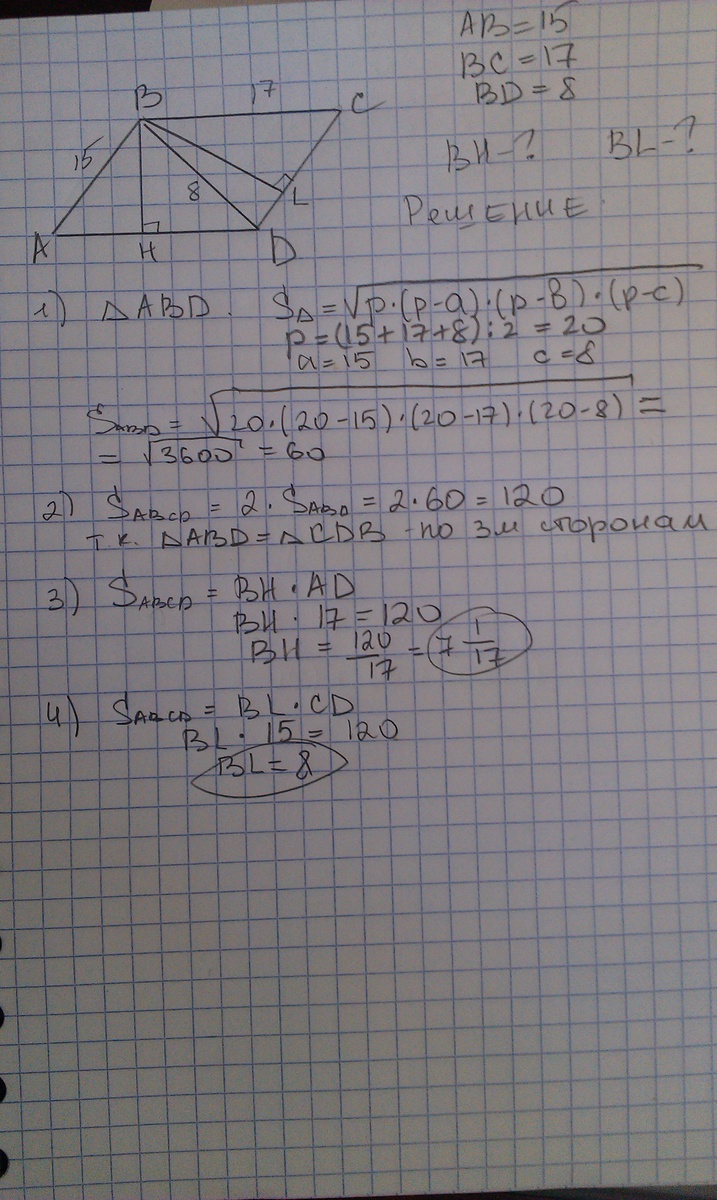 AB = 15
BC = 17
BD = 8
BH - ? BL - ?
B 17 C
15
8
L
A H D
РЕШЕНИЕ.
1) △ABD. S△ = √p·(p-a)·(p-b)·(p-c)
p = (15+17+8):2 = 20
a = 15 b = 17 c = 8
SABD = √20·(20-15)·(20-17)·(20-8) =
= √3600 = 60
2) SABCD = 2·SABD = 2·60 = 120
т.к. △ABD = △CDB - по 3м сторонам
3) SABCD = BH·AD
BH·17 = 120
BH = 120/17 = 7 1/17
4) SABCD = BL·CD
BL·15 = 120
BL = 8